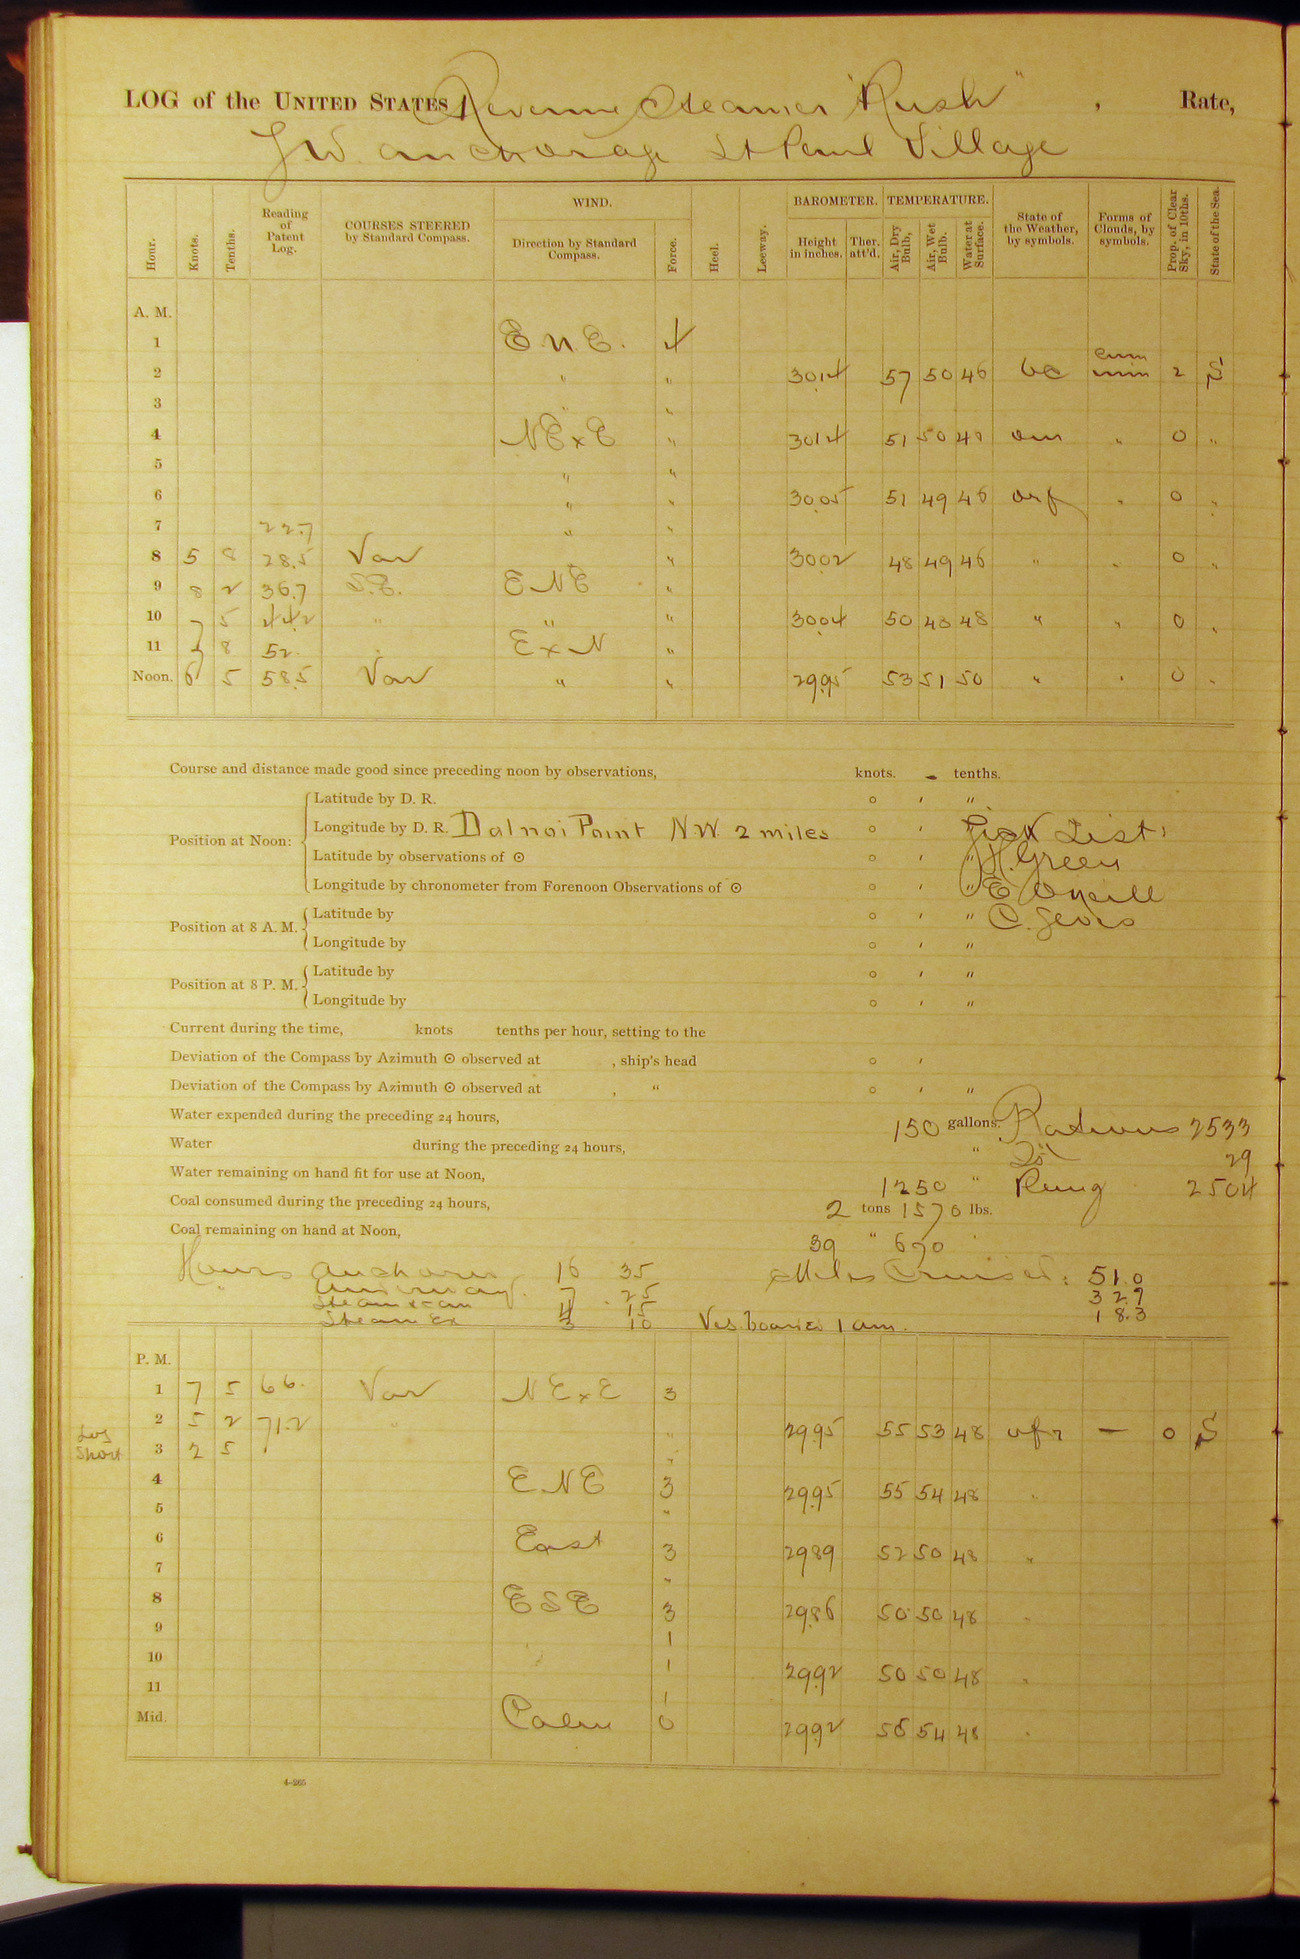 LOG of the UNITED STATES Revenue Steamer "Rush" , Rate,
SW anchorage St Paul Village
Hour. Knots. Tenths. Reading of Patent Log. COURSES STEERED by Standard Compass. WIND. Direction by Standard Compass. Force. Heel. Leeway. BAROMETER. Height in inches. Ther. att'd. TEMPERATURE. Air, Dry Bulb, Air, Wet Bulb. Water at Surface. State of the Weather, by symbols. Forms of Clouds, by symbols. Prop. of Clear Sky, in 10ths. State of the Sea.
A. M.
1 E N. E. 4
2 " " 30.14 57 50 46 bc cum nim 2 S
3 " "
4 NExE " 30.14 51 50 om " 0 "
5 " "
6 " " 30.05 51 49 46 orf " 0 "
7 22.7 " "
8 5 8 28.5 Var " 30.02 48 49 46 " " 0 "
9 8 2 36.7 S.E. ENE "
10 7 5 44.2 " " " 30.04 50 48 48 " " 0 "
11 7 8 52. " ExN "
Noon. 6 5 58.5 Var " " 29.95 53 51 50 " " 0 "
Course and distance made good since preceding noon by observations, knots. - tenths.
Position at Noon:
Latitude by D. R. ° ' "
Longitude by D. R. Dalnoi Point NW 2 miles ° ' " Sick List:
Latitude by observations of ☉ ° ' " H. Green
Longitude by chronometer from Forenoon Observations of ☉ ° ' " E Oneill
Position at 8 A. M. Latitude by ° ' " C.
Longitude by ° ' "
Position at 8 P. M. Latitude by ° ' "
Longitude by ° ' "
Current during the time, knots tenths per hour, setting to the
Deviation of the Compass by Azimuth ☉ observed at , ship's head ° '
Deviation of the Compass by Azimuth ☉ observed at , " ° ' "
Water expended during the preceding 24 hours, 150 gallons. Rations 2533
Water during the preceding 24 hours, " 29
Water remaining on hand fit for use at Noon, 1250 " 2504
Coal consumed during the preceding 24 hours, 2 tons 1570 lbs.
Coal remaining on hand at Noon, 39 " 670 "
Hours anchored 16 35 Miles Cruised: 51.0
" underway 7 25 32.7
Steam 4 15 18.3
Steam Ex 3 10 Ves. boarded 1 am.
P. M.
1 7 5 66. Var NExE 3
2 5 2 71.2 " " 29.95 55 53 48 ofr — 0 S
Log Short 3 2 5 "
4 ENE 3 29.95 55 54 48 "
5 "
6 East 3 29.89 52 50 48 "
7 "
8 ESE 3 29.86 50 50 48 "
9 1
10 " 1 29.92 50 50 48 "
11 1
Mid. Calm 0 29.92 54 48 "
4-265